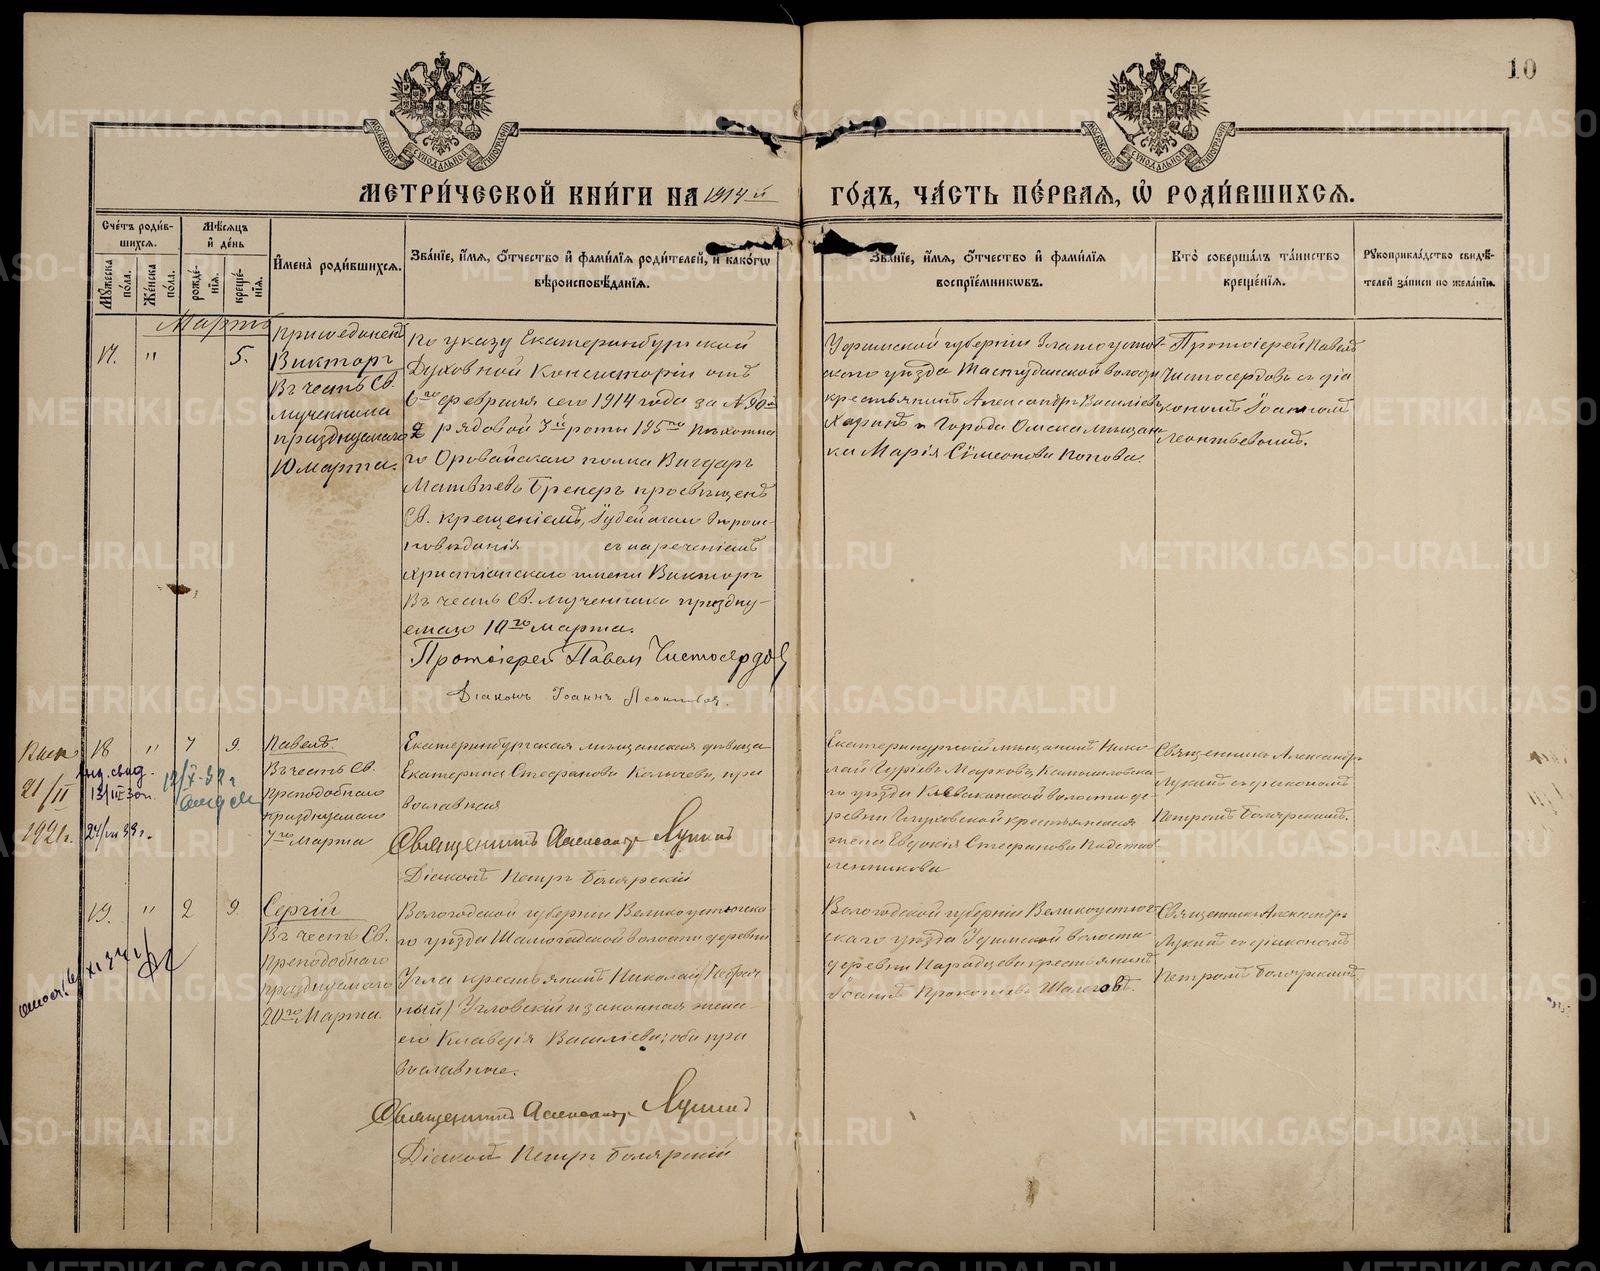 10
МОСКОВСКОЙ СѴНОДАЛЬНОЙ ТИПОГРАФІИ
МОСКОВСКОЙ СѴНОДАЛЬНОЙ ТИПОГРАФІИ
МЕТРИ́ЧЕСКОЙ КНИ́ГИ НА 1914 й ГО́ДЪ, ЧА́СТЬ ПЕ́РВАЯ, Ѽ РОДИ́ВШИХСЯ.
Сче́тъ роди́в-
шихся.
Мꙋ́жеска по́ла.
Же́нска по́ла.
Мѣ́сяцъ
и҆ де́нь
рожде́-
нія.
креще́-
нія.
И҆мена̀ роди́вшихся.
Зва́ніе, и҆́мя, ѻ҆́тчество и҆ фами́лія роди́телей, и҆ како́гѡ
вѣроисповѣ́данія.
Зва́ніе, и҆́мя, ѻ҆́тчество и҆ фами́лія
воспріе́мникѡвъ.
Кто̀ соверша́лъ та́инство
креще́нія.
Рꙋкоприкла́дство свидѣ́-
телей за́писи по жела́нію.
Мартъ
17.
"
5.
Присоединенъ
Викторъ
Въ честь Св.
мученика
празднуемаго
10 марта.
По указу Екатеринбургской
Духовной Консисторіи отъ
6го февраля сего 1914 года за №
рядовой 7й роты 195го пѣхотна
го Оровайскаго полка Вигдаръ
Матвѣевъ Бренеръ просвѣщенъ
Св. крещеніемъ, Іудейскаго вѣроис-
повѣданія съ нареченіемъ
христіанскаго имени Викторъ
Въ честь Св. мученика праздну-
емаго 10го марта.
Протоіерей Павелъ Чистосердовъ
Діаконъ Іоаннъ Леонтьевъ.
Уфимской губерніи Златоустов-
скаго уѣзда Тастубинской волости
крестьянинъ Александръ Василіевъ
Харинъ и города Омска мѣщан-
ка Марія Сѵмеонова Попова.
Протоіерей Павелъ
Чистосердовъ съ діа
кономъ Іоанномъ
Леонтьевымъ.
21/II
1921 г.
13/III 30 г.
24/VII 33 г.
12/X-37 г
18
"
7
9.
Павелъ
Въ честь Св.
Преподобнаго
празднуемаго
7го Марта
Екатеринбургская мѣщанская дѣвица
Екатерина Стефанова Калычева, пра
вославная
Священникъ Александръ Луканъ
Діаконъ Петръ Боярскій
Екатеринбургскій мѣщанинъ Нико
лай Гурьевъ Марковъ, Камышловска-
го уѣзда волости де-
ревни крестьянская
жена Евдокія Стефанова
Священникъ Александръ
съ діакономъ
Петромъ Боярскимъ.
19.
"
2
9.
Сергій
Въ честь Св.
Преподобнаго
празднуемаго
20го Марта.
Вологодской губерніи Великоустюгска
го уѣзда Шемогодской волости деревни
Угла крестьянинъ Николай
Угловскій и законная жена
его Клавдія Василіева; оба пра
вославные.
Священникъ Александръ
Діаконъ Петръ Боярскій
Вологодской губерніи Великоустюг-
скаго уѣзда волости
деревни крестьянинъ
Іоаннъ Прокопіевъ
Священникъ Александръ
съ діакономъ
Петромъ Боярскимъ